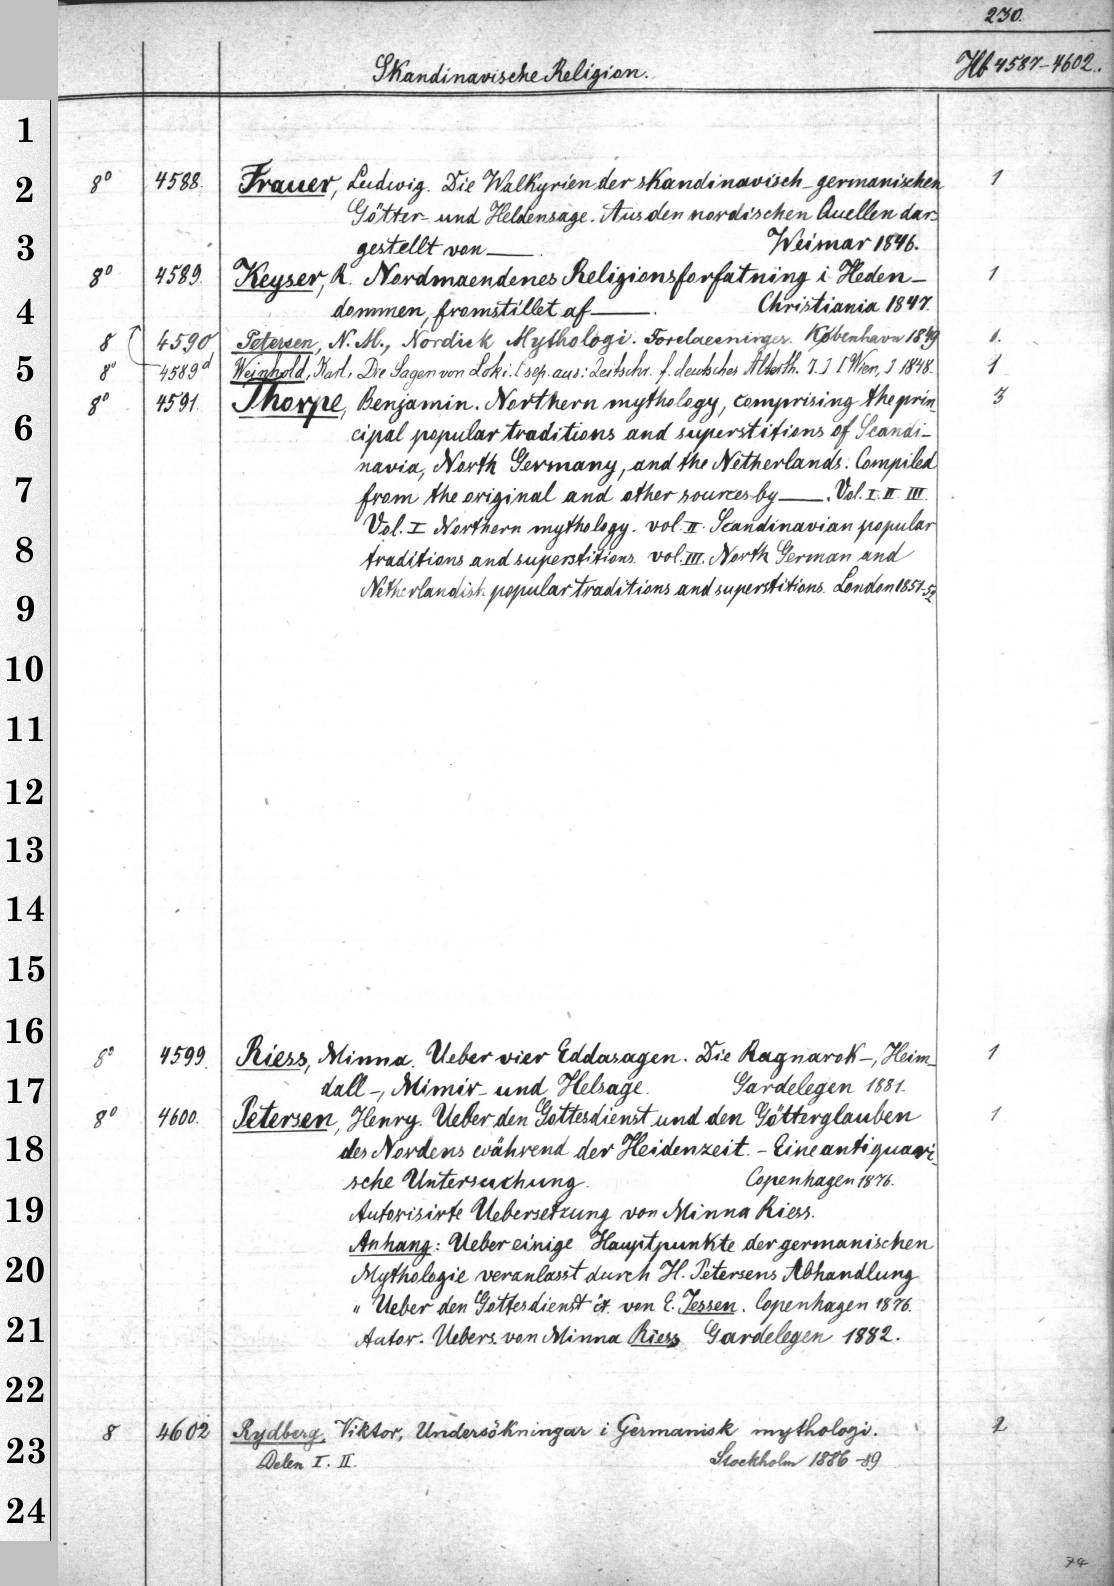 230.
Skandinavische Religion. Hb 4587-4602.
1
2
3
4
5
6
7
8
9
10
11
12
13
14
15
16
17
18
19
20
21
22
23
24
8° 4588. Frauer, Ludwig. Die Walkyrien der skandinavisch-germanischen 1
Götter- und Heldensage. Aus den nordischen Quellen dar-
gestellt von —. Weimar 1846.
8° 4589. Keyser, R. Nordmaendenes Religionsforfatning i Heden- 1
dommen, fromstillet af —. Christiania 1847.
8 4590 Petersen, N. M., Nordisk Mythologi. Forelaesninger. København 1849 1.
8° 4589d Weinhold, Karl, Die Sagen von Loki. [sep. aus: Zeitschr. f. deutsches Alterth. 7.] [Wien,] 1848. 1
8° 4591. Thorpe, Benjamin. Northern mythology, comprising the prin- 3
cipal popular traditions and superstitions of Scandi-
navia, North Germany, and the Netherlands. Compiled
from the original and other sources by —. Vol. I. II. III.
Vol. I Northern mythology. vol. II. Scandinavian popular
traditions and superstitions. vol. III. North German and
Netherlandish popular traditions and superstitions. London 1851-52
8° 4599. Riess, Minna. Ueber vier Eddasagen. Die Ragnarok-, Heim- 1
dall-, Mimir- und Helsage. Gardelegen 1881.
8° 4600. Petersen, Henry. Ueber den Gottesdienst und den Götterglauben 1
des Nordens während der Heidenzeit. - Eine antiquari-
sche Untersuchung. Copenhagen 1876.
Autorisirte Uebersetzung von Minna Riess.
Anhang: Ueber einige Hauptpunkte der germanischen
Mythologie veranlasst durch H. Petersens Abhandlung
„ Ueber den Gottesdienst &. von E. Jessen. Copenhagen 1876.
Autor. Uebers. von Minna Riess Gardelegen 1882.
8 4602 Rydberg, Viktor, Undersökningar i Germanisk mythologi. 2
Delen I. II. Stockholm 1886-89
74